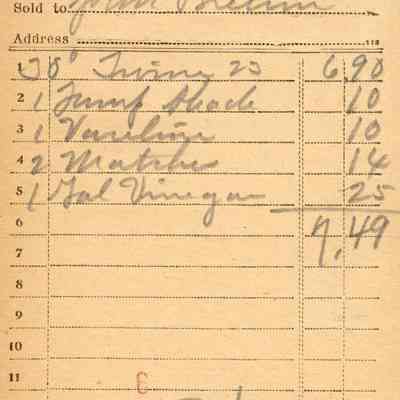 Sold to John
Address 118
1 30 Twine 23 6.90
2 1 Lamp Shade 10
3 1 Vaseline 10
4 2 Matches 14
5 1 Gal Vinegar 25
6 7.49
7
8
9
10
11
6